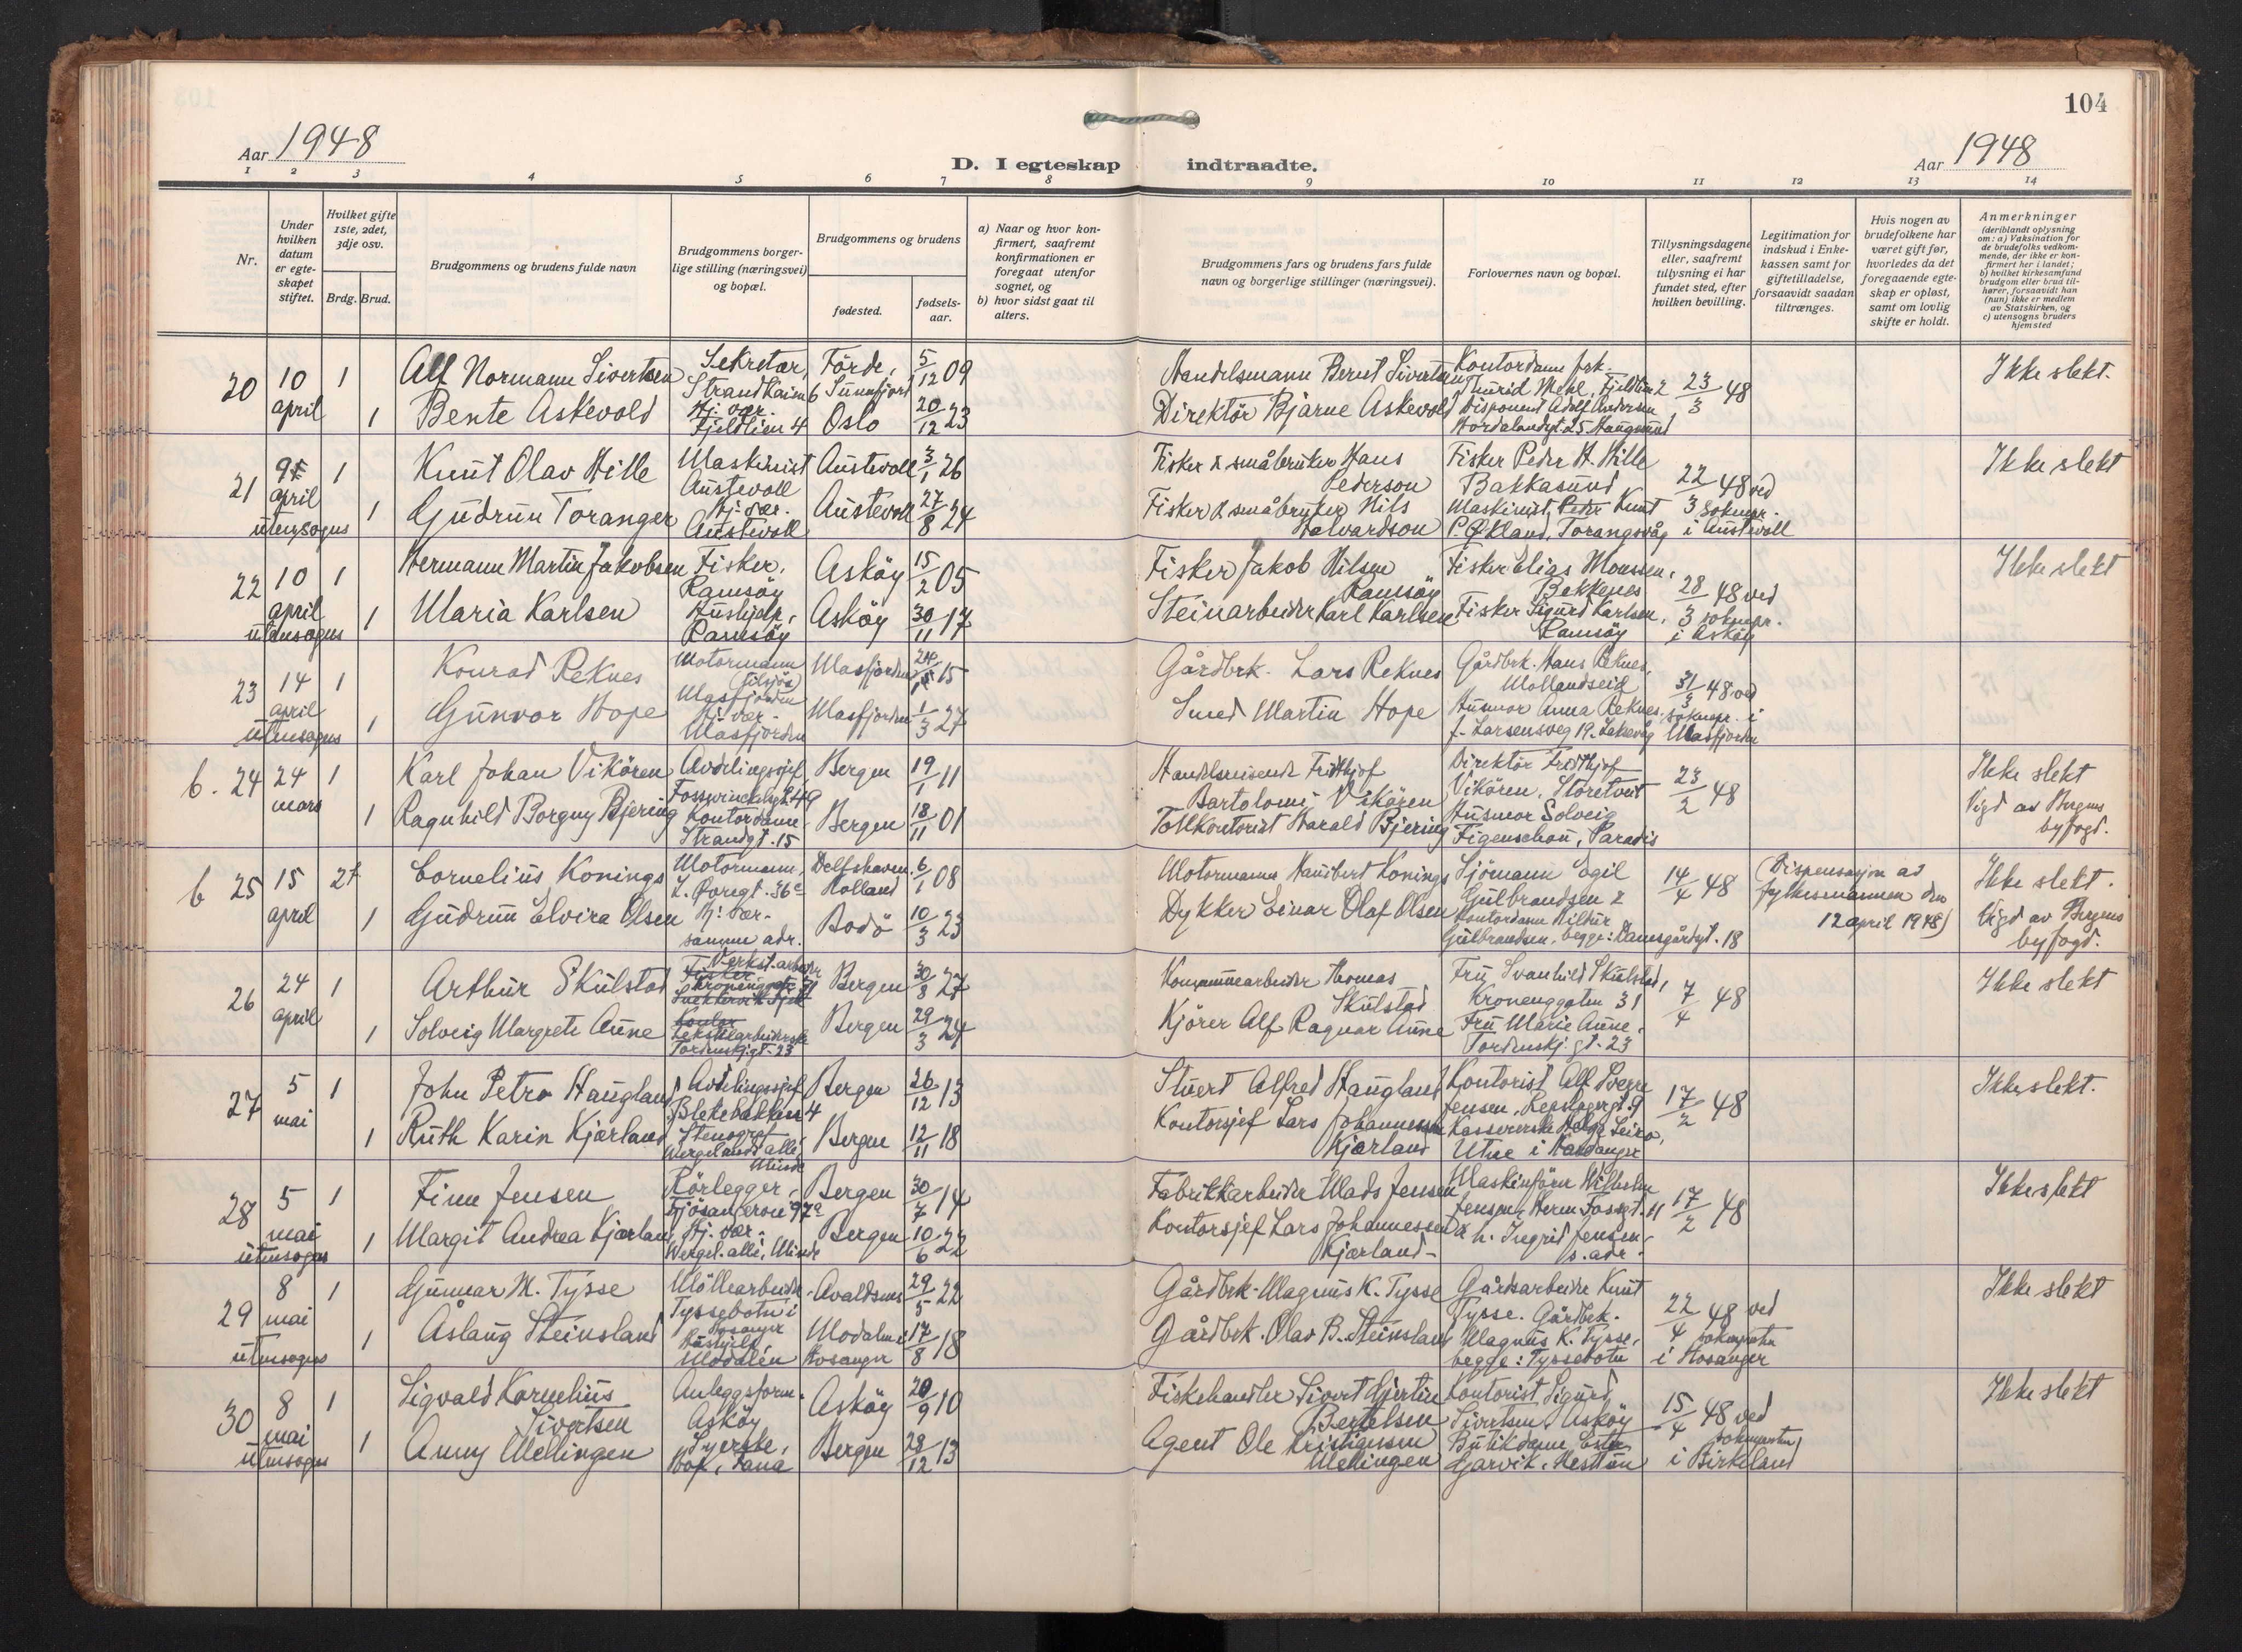 104
Aar 1948
D. I egteskap indtraadte.
Aar 1948
1 2 3 4 5 6 7 8 9 10 11 12 13 14
Nr.
Under hvilken datum er egteskapet stiftet.
Hvilket gifte 1ste, 2det, 3dje osv.
Brdg. Brud.
Brudgommens og brudens fulde navn
Brudgommens borgerlige stilling (næringsvei) og bopæl.
Brudgommens og brudens
fødested.
fødselsaar.
a) Naar og hvor konfirmert, saafremt konfirmationen er foregaat utenfor sognet, og
b) hvor sidst gaat til alters.
Brudgommens fars og brudens fars fulde navn og borgerlige stillinger (næringsvei).
Forlovernes navn og bopæl.
Tillysningsdagene eller, saafremt tillysning ei har fundet sted, efter hvilken bevilling.
Legitimation for indskud i Enkekassen samt for giftetilladelse, forsaavidt saadan tiltrænges.
Hvis nogen av brudefolkene har været gift før, hvorledes da det foregaaende egteskap er opløst, samt om lovlig skifte er holdt.
Anmerkninger (deriblandt oplysning om: a) Vaksination for de brudefolks vedkommende, der ikke er konfirmert her i landet; b) hvilket kirkesamfund brudgom eller brud tilhører, forsaavidt han (hun) ikke er medlem av Statskirken, og c) utensogns bruders hjemsted
20 10 april 1 Alf Normann Sivertsen Sekretær, Strandkaien 6 Förde, Sunnfjord 5/12 09 Handelsmann Bernt Sivertsen Kontordame frk. Turid Mehl, Fjeldlien 2 23/3 48 Ikke slekt.
1 Bente Askevold Hj. vær. Fjeldlien 4 Oslo 20/12 23 Direktör Bjarne Askevold Disponent Adolf Andersen, Hordalandgt. 25 Haugesund
21 9 april utensogns 1 Knut Olav Hille Maskinist Austevoll Austevoll 3/1 26 Fisker & småbruker Hans Pederson Fisker Peder H. Hille Bakkasund 22/3 48 ved soknepr. i Austevoll Ikke slekt
1 Gudrun Toranger hj. vær. Austevoll Austevoll 27/8 24 Fisker & småbruker Nils Halvardson Maskinist Knut P. Økland, Torangsvåg
22 10 april utensogns 1 Hermann Martin Jakobsen Fisker, Ramsöy Asköy 15/2 05 Fisker Jakob Nilsen Ramsöy Fisker Elias Monssen, Bakkenes 28/3 48 ved soknepr. i Asköy Ikke slekt
1 Maria Karlsen Hushjelp, Ramsöy Asköy 30/11 17 Steinarbeider Karl Karlsen Fisker Sigurd Karlsen, Ramsöy
23 14 april utensogns 1 Konrad Reknes Motormann (tilsjös) Masfjorden Masfjorden 24 15 Gårdbrk. Lars Reknes Gårdbrk. Hans Reknes, Mollandseid 31/3 48 ved soknepr. i Masfjorden
1 Gunvor Hope hj. vær. Masfjorden Masfjorden 1/3 27 Smed Martin Hope Husmor Anna Reknes, J. Larsensveg 19. Laksevåg
b. 24 24 mars 1 Karl Johan Vikören Avdelingssjef, Fosswinckelsgt. 49 Bergen 19/1 11 Handelsreisende Fridthjof Bartolomi Vikören Direktör Fridthjof Vikören, Storetveit 23/2 48 Ikke slekt Vigd av Bergens byfogd.
1 Ragnhild Borgny Bjering Kontordame. Strandgt. 15 Bergen 18/11 01 Tollkontorist Harald Bjering Husmor Solveig Figenschou, Paradis
b 25 15 april 2t Cornelius Konings Motormann, L. Øvregt. 36a Delfshaven, Holland 6/1 08 Motormann Konings Sjömann Egil Gulbrandsen & 14/4 48 (Dispensasjon av fylkesmannen den 12 april 1948) Ikke slekt. Vigd av Bergens byfogd.
1 Gudrun Elvira Olsen hj. vær. samme adr. Bodö 10/3 23 Dykker Einar Olaf Olsen Kontordame Hildur Gulbrandsen, begge: Damsgårdgt. 18
26 24 april 1 Arthur Skulstad Verkst. arbeider Kronenggate 31 Bergen 30/8 27 Kommunearbeider Thomas Skulstad Fru Svanhild Skulstad, Kronenggaten 31 7/4 48 Ikke slekt
1 Solveig Margrete Aune Tekstilarbeiderske Tordenskj.gt. 23 Bergen 29/3 24 Kjörer Alf Ragnar Aune Fru Marie Aune, Tordenskj. gt. 23
27 5 mai 1 John Petro Haugland Avdelingssjef Blekebakken 4 Bergen 26/12 13 Stuert Alfred Haugland Kontorist Alf Sverre Jensen, Repslagergt. 9 17/2 48 Ikke slekt.
1 Ruth Karin Kjærland Stenograf Wergelands alle, Minde Bergen 12/11 18 Kontorsjef Lars Johannessen Kjærland Kassererske Helga Leiro, Utne i Hardanger
28 5 mai utensogns 1 Finn Jensen Rörlegger, Fjösangervei 97a Bergen 30/7 14 Fabrikkarbeider Mads Jensen Maskinförer Wilhelm Jensen, Herm Fossgt. 11 17/2 48 Ikke slekt
1 Margit Andrea Kjærland Hj. vær. Wergel. alle, Minde Bergen 10/6 22 Kontorsjef Lars Johannessen Kjærland & h. Ingrid Jensen, s. adr.
29 8 mai utensogns 1 Gunnar M. Tysse Möllearbeider Tyssebotn i Hosanger Avaldsnes 29/5 22 Gårdbrk. Magnus K. Tysse Gårdsarbeider Knut Tysse. Gårdbrk. 22/4 48 ved i Hosanger Ikke slekt
1 Åslaug Steinsland Hushjelp, Modalen Modalen i Hosanger 17/8 18 Gårdbrk. Olav B. Steinsland Magnus K. Tysse, begge: Tyssebotn
30 8 mai utensogns 1 Sigvald Kornelius Sivertsen Anleggsform. Asköy Asköy 20/9 10 Fiskehandler Sivert Gjertin Bertelsen Kontorist Sigurd Sivertsen, Asköy 15/4 48 ved i Birkeland Ikke slekt
1 Anny Mellingen Syerske, Hop, Fana Bergen 28/12 13 Agent Ole Kristiansen Mellingen Butikdame Ester Gjarvik, Nesttun